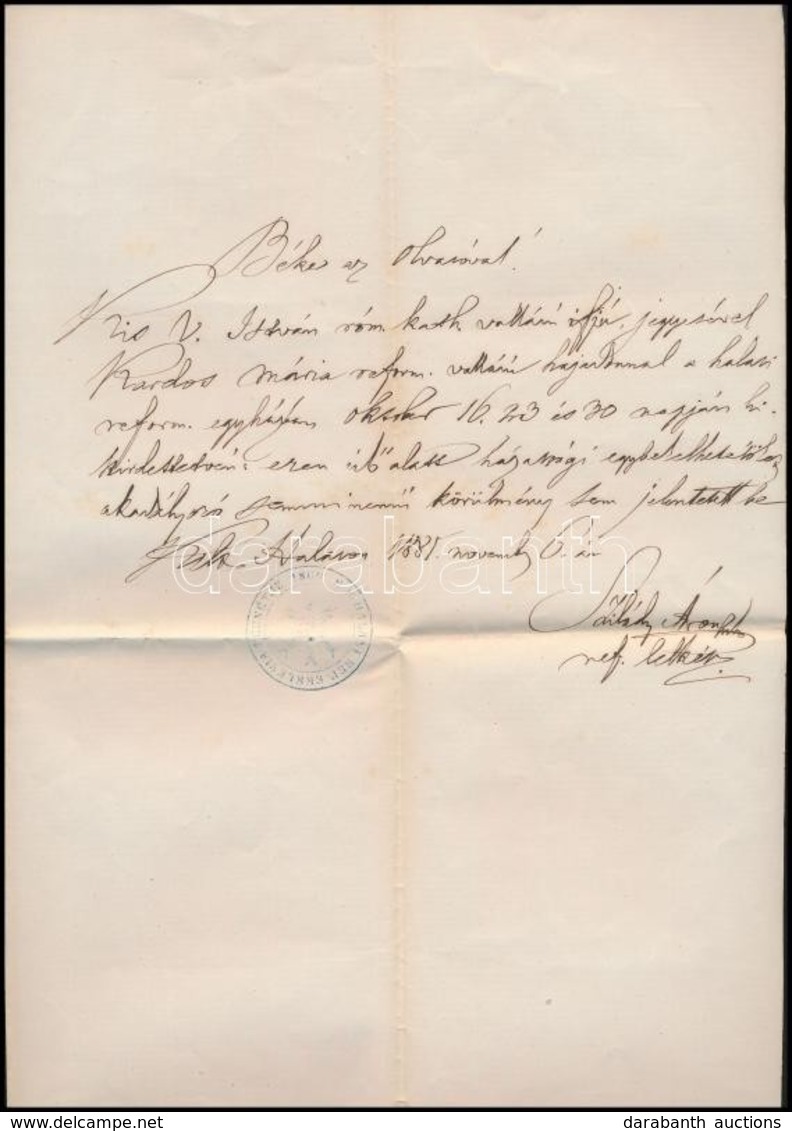 Béke az olvasóval!
Kis V. István róm. kath. vallású ifjú, jegyesével
Kardos Mária reform. vallású hajadonnal a halasi
reform. egyházban október 16. 23 és 30 napján ki-
hirdettetvén: ezen idő alatt házassági egybekelhetésöket
akadályozó semminemű körülmény sem jelentetett be
Halason 1881. november 6.án
darabanth
Szilády Áron
ref. lelkész.
darabanth auctions